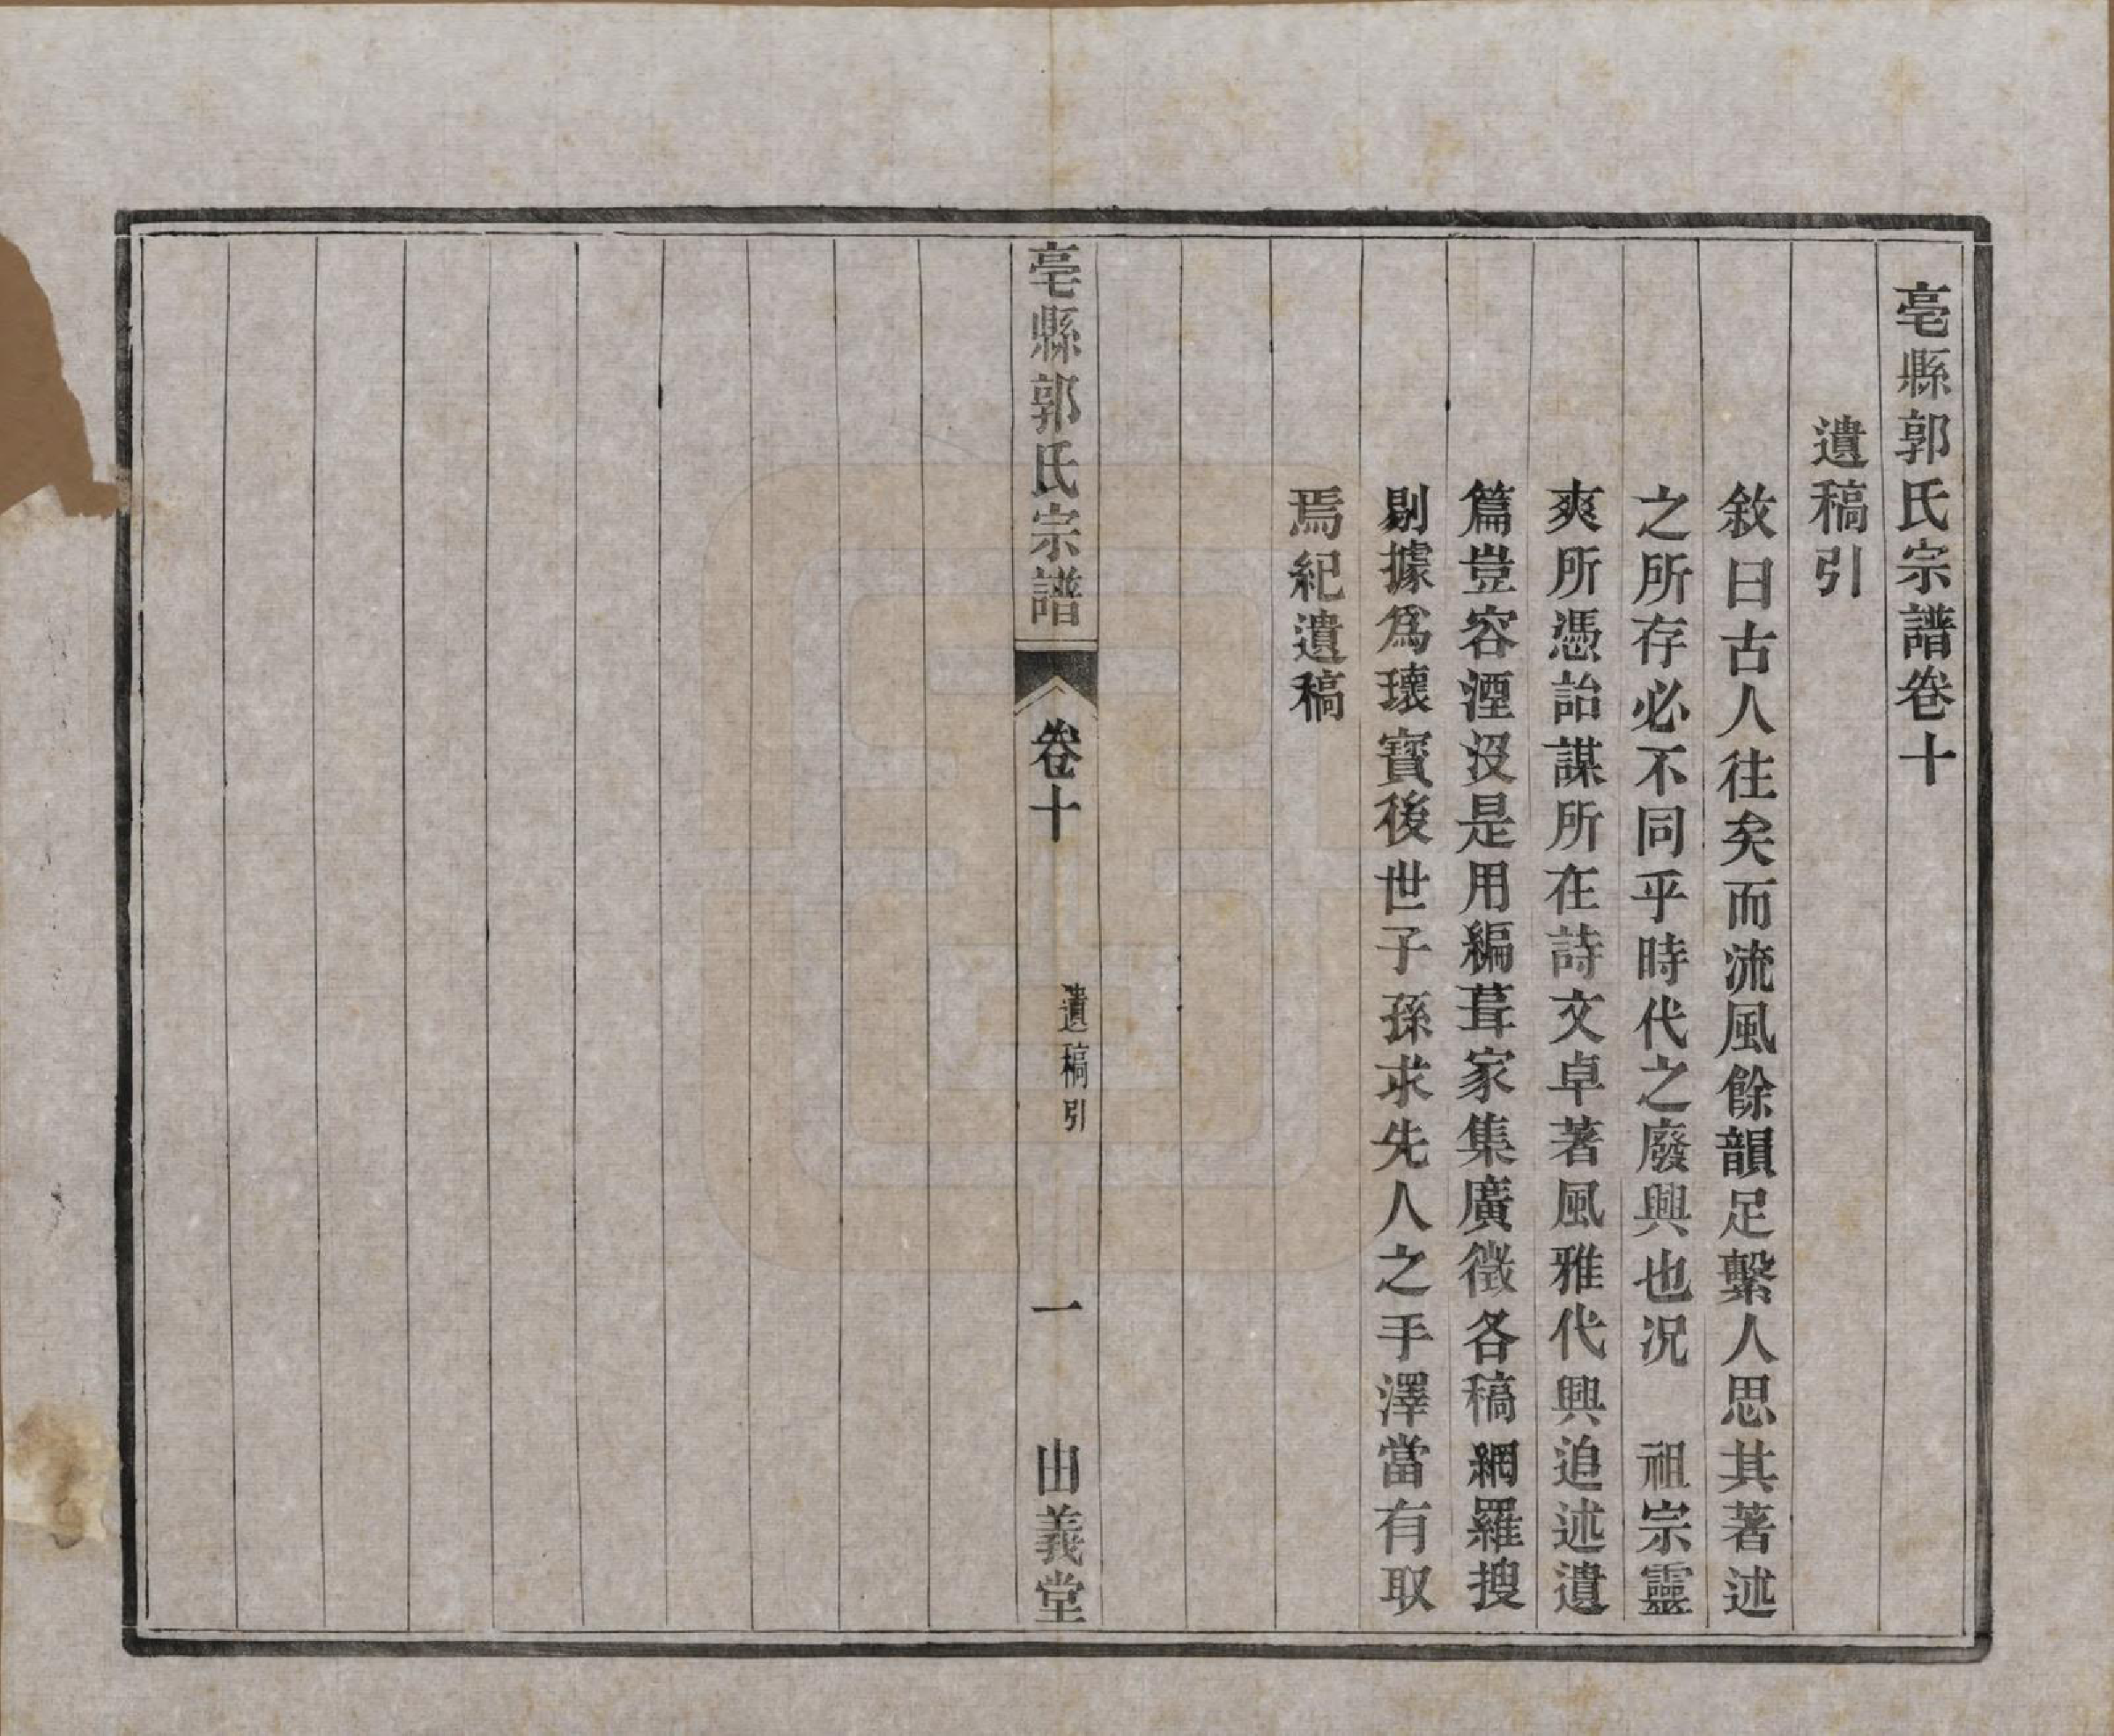 亳縣郭氏宗譜卷十
遺稿引
敘曰古人往矣而流風餘韻足繫人思其著述
之所存必不同乎時代之廢興也况　祖宗靈
爽所憑詒謀所在詩文卓著風雅代興追述遺
篇豈容湮沒是用編葺家集廣徵各稿網羅搜
剔據爲瓌寳後世子孫求先人之手澤當有取
焉紀遺稿
亳縣郭氏宗譜
卷十
遺稿引
一
由義堂